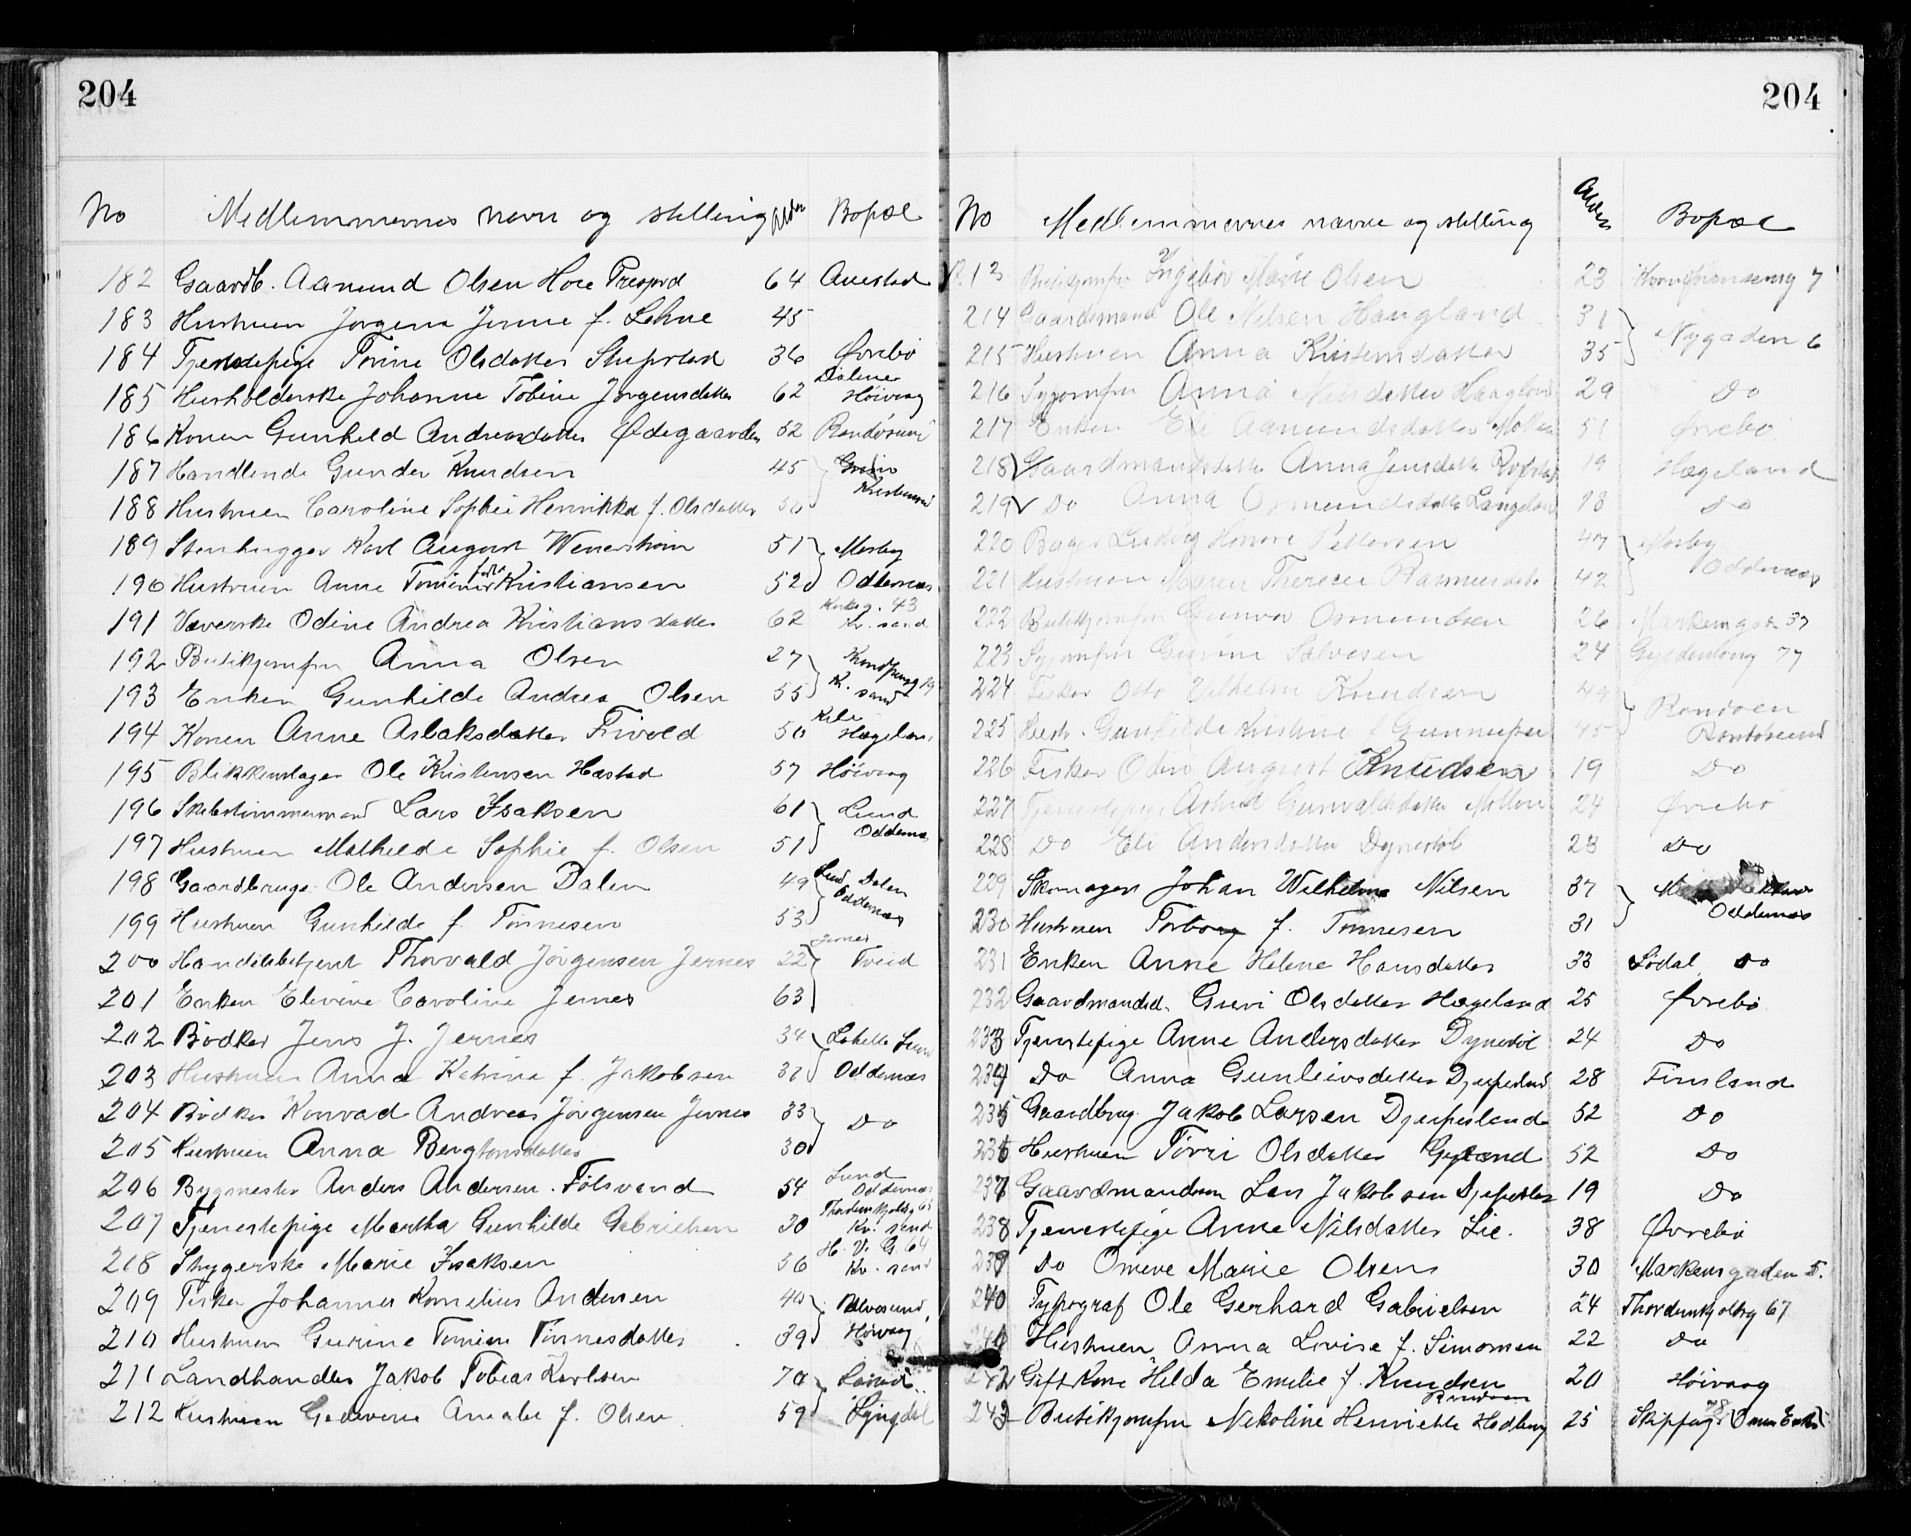 204
No Medlemmernes navn og stilling Alder Bopæl
182 Gaardb. Aamund Olsen Hore 64 Auestad
183 Hustruen Jorgena f. Lohne 45
184 Tjenestepige Torine Olsdatter 36 Øvrebø
185 Husholderske Johanne Tobine Jørgensdatter 62 Høivaag
186 Konen Gunhild Andreasdatter Ødegaarden 52 Randøsund
187 Handlende Gunder Knudsen 45
188 Hustruen Caroline Sophie Henrikka f. Olsdatter 50
189 Stenhugger Karl August Wennerstrøm 51 Mosby
190 Hustruen Anne Tomine født Kristiansen 52 Oddernes
191 Væverske Odine Andrea Kristiansdatter 62 43 Kr. sand
192 Butikjomfru Anna Olsen 27
193 Enken Gunhilde Andrea Olsen 55 Kr. sand
194 Konen Anne Aslaksdatter Frivold 50 Hægeland
195 Blikkenslager Ole Kristensen Hæstad 57 Høivaag
196 Skibstimmermand Lars Isaksen 61 Lund
197 Hustruen Mathilde Sophie f. Olsen 51 Oddernes
198 Gaardbruger Ole Andersen Dalen 49 Lund Dalen
199 Hustruen Gunhilde f. Tønnesen 53 Oddernes
200 Handelsbetjent Thorvald Jørgensen Jernes 22 Jernes Tveid
201 Enken Elevine Caroline Jernes 63
202 Bødker Jens J. Jernes 34 Lahelle Lund
203 Hustruen Anna Katrine f. Jakobsen 31 Oddernes
204 Bødker Konrad Andreas Jørgensen Jernes 33 Do
205 Hustruen Anna Bergtonsdatter 30
206 Bygmester Anders Andersen Følsvand 54 Lund Oddernes
207 Tjenestepige Martha Gunhilde Gabrielsen 30 Kr. sand
208 Strygerske Marie Isaksen 56 H. V. G. 64 Kr. sand
209 Fisker Johannes Kornelius Andersen 40
210 Hustruen Gurine Tomine Tønnesdatter 39 Høivaag
211 Landhandler Jakob Tobias Karlsen 70
212 Hustruen Amalie f. Olsen 59 Lyngdal
204
No Medlemmernes navne og stilling Alder Bopæl
213 Butikjomfru Ingebor Marie Olsen 23 7
214 Gaardmand Ole Nilsen Haugland 31 Nygaden 6
215 Hustruen Anna Kristensdatter 35
216 Syjomfru Anna Nilsdatter Haugland 29 Do
217 Enken Eli Aamundsdatter 51 Øvrebø
218 Gaardmandsdatter Anna Jensdatter 19 Hægeland
219 Do Anna Osmundsdatter Langeland 18 Do
220 Bager Ludvig Pettersen 47 Mosby
221 Hustruen Maren Therese Rasmusdatter 42 Oddernes
222 Butikjomfru Gunvor Osmundsen 26 Markensg. 37
223 Syjomfru Gurine Salvesen 24 Gyldenløvsg 77
224 Fisker Otto Vilhelm Knudsen 49 Randøen
225 Hustr. Gunhilde Kristine f. 45 Randøsund
226 Fisker Otto August Knudsen 19 Do
227 Tjenestepige Astrid Gunvaldsdatter 24 Øvrebø
228 Do Eli Andersdatter Dynestøl 23 Do
229 Skomager Johan Wilhelm Nilsen 37
230 Hustruen Torborg f. Tønnesen 31 Oddernes
231 Enken Anne Helene Hansdatter 33 Lødal Do
232 Gaardmandsd. Guri Olsdatter Hægeland 25 Øvrebø
233 Tjenestepige Anne Andersdatter Dynestøl 24 Do
234 Do Anna Gunleivsdatter Djupesland 28 Finsland
235 Gaardbrug. Jakob Larsen Djupesland 52 Do
236 Hustruen Torri Olsdatter 52 Do
237 Gaardmandssøn Lars Jakobsen 19 Do
238 Tjenestepige Anne Nilsdatter Lie 38 Øvrebø
239 Do Omine Marie Olsen 30 Markensgaden 5.
240 Typograf Ole Gerhard Gabrielsen 24 67
241 Hustruen Anna Lovise f. Simonsen 22 Do
242 Gift Kone Hilda Emilie f. Knudsen 20 Høivaag
243 Butikjomfru Nikoline Henriette Hedberg 25